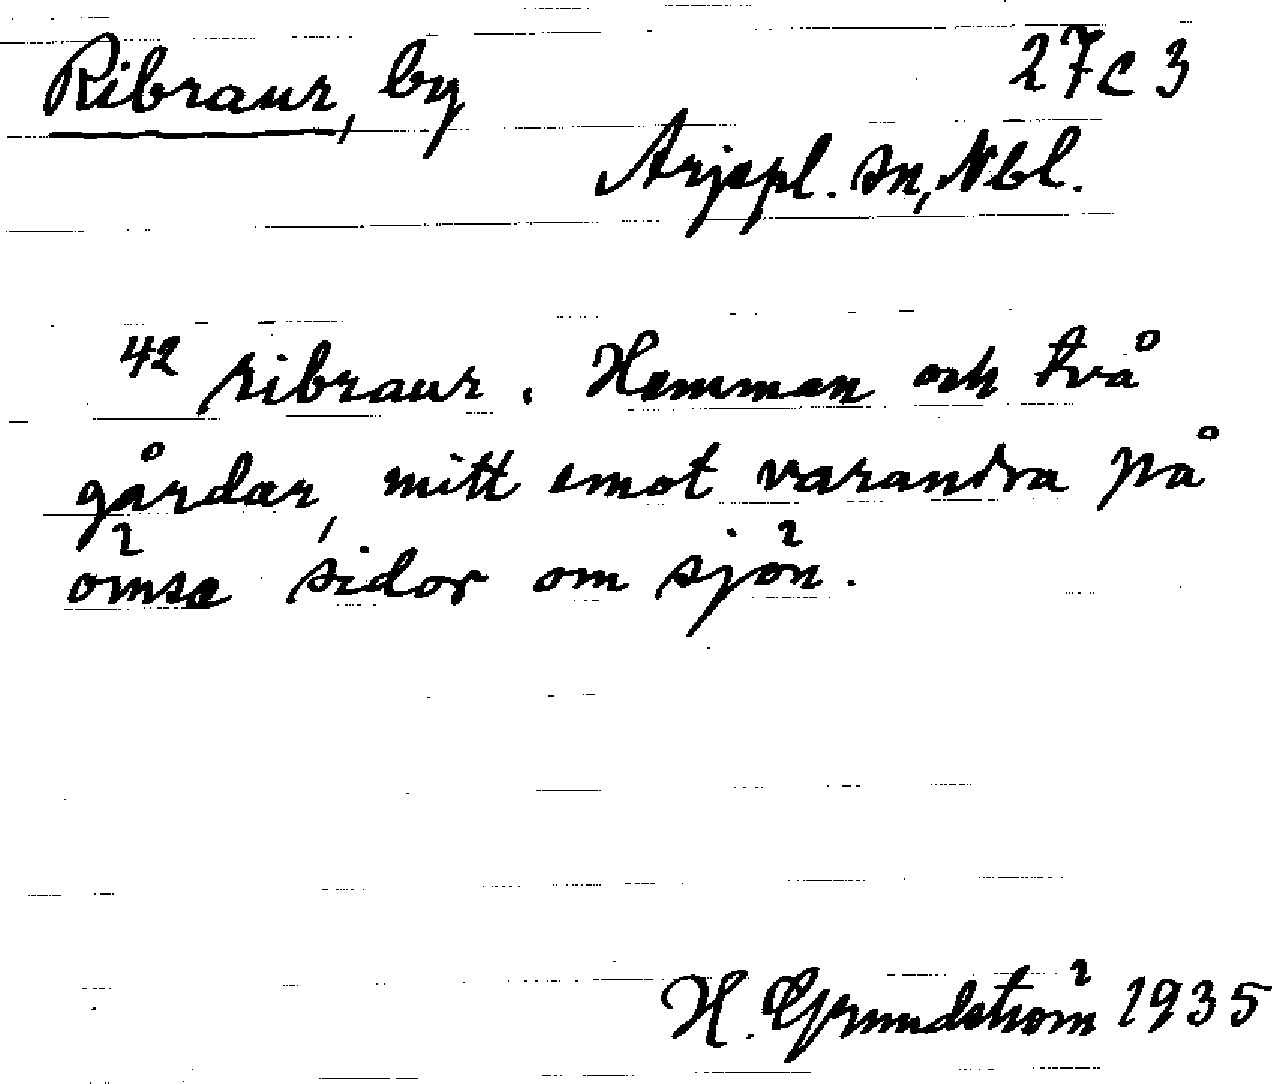 Ribraur, by 27c3
Arjepl. sn, Nbl.
42 ribraur. Hemman och två
gårdar, mitt emot varandra på
ömse sidor om sjön.
H. Grundström 1935